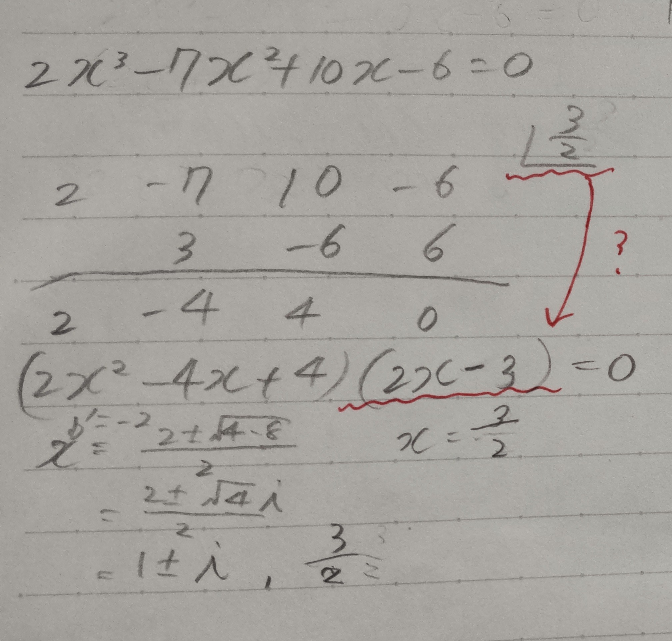 2x³-7x²+10x-6=0
3/2
2 -7 10 -6
3 -6 6
?
2 -4 4 0
(2x²-4x+4)(2x-3)=0
b'=-2
x=(2±√4-8)/2 x=3/2
=(2±√4i)/2
=1±i, 3/2